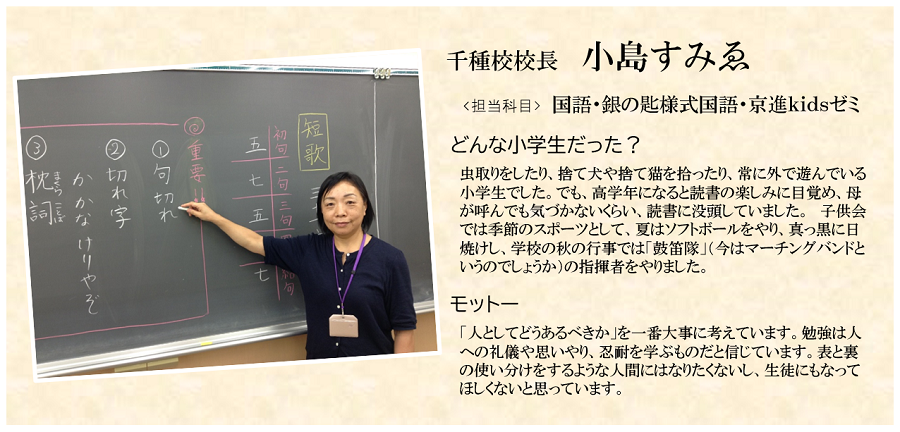 千種校校長　小島すみゑ
<担当科目> 国語・銀の匙様式国語・京進kidsゼミ
どんな小学生だった？
虫取りをしたり、捨て犬や捨て猫を拾ったり、常に外で遊んでいる
小学生でした。でも、高学年になると読書の楽しみに目覚め、母
が呼んでも気づかないくらい、読書に没頭していました。　子供会
では季節のスポーツとして、夏はソフトボールをやり、真っ黒に日
焼けし、学校の秋の行事では「鼓笛隊」（今はマーチングバンドと
いうのでしょうか）の指揮者をやりました。
モットー
「人としてどうあるべきか」を一番大事に考えています。勉強は人
への礼儀や思いやり、忍耐を学ぶものだと信じています。表と裏
の使い分けをするような人間にはなりたくないし、生徒にもなって
ほしくないと思っています。
短歌
初句 二句 三句
五 七 五 七
結句
◎重要!!
① 句切れ
② 切れ字
かかなけりやぞ
③ 枕詞
まくらことば